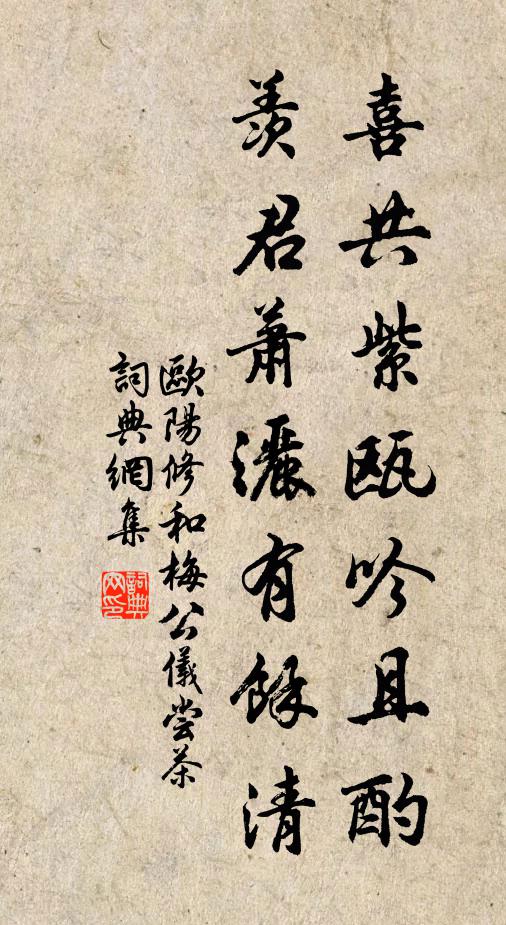 喜共紫瓯吟且酌
羨君蕭灑有餘清
歐陽修和梅公儀嘗茶
詞典網集
詞典网印